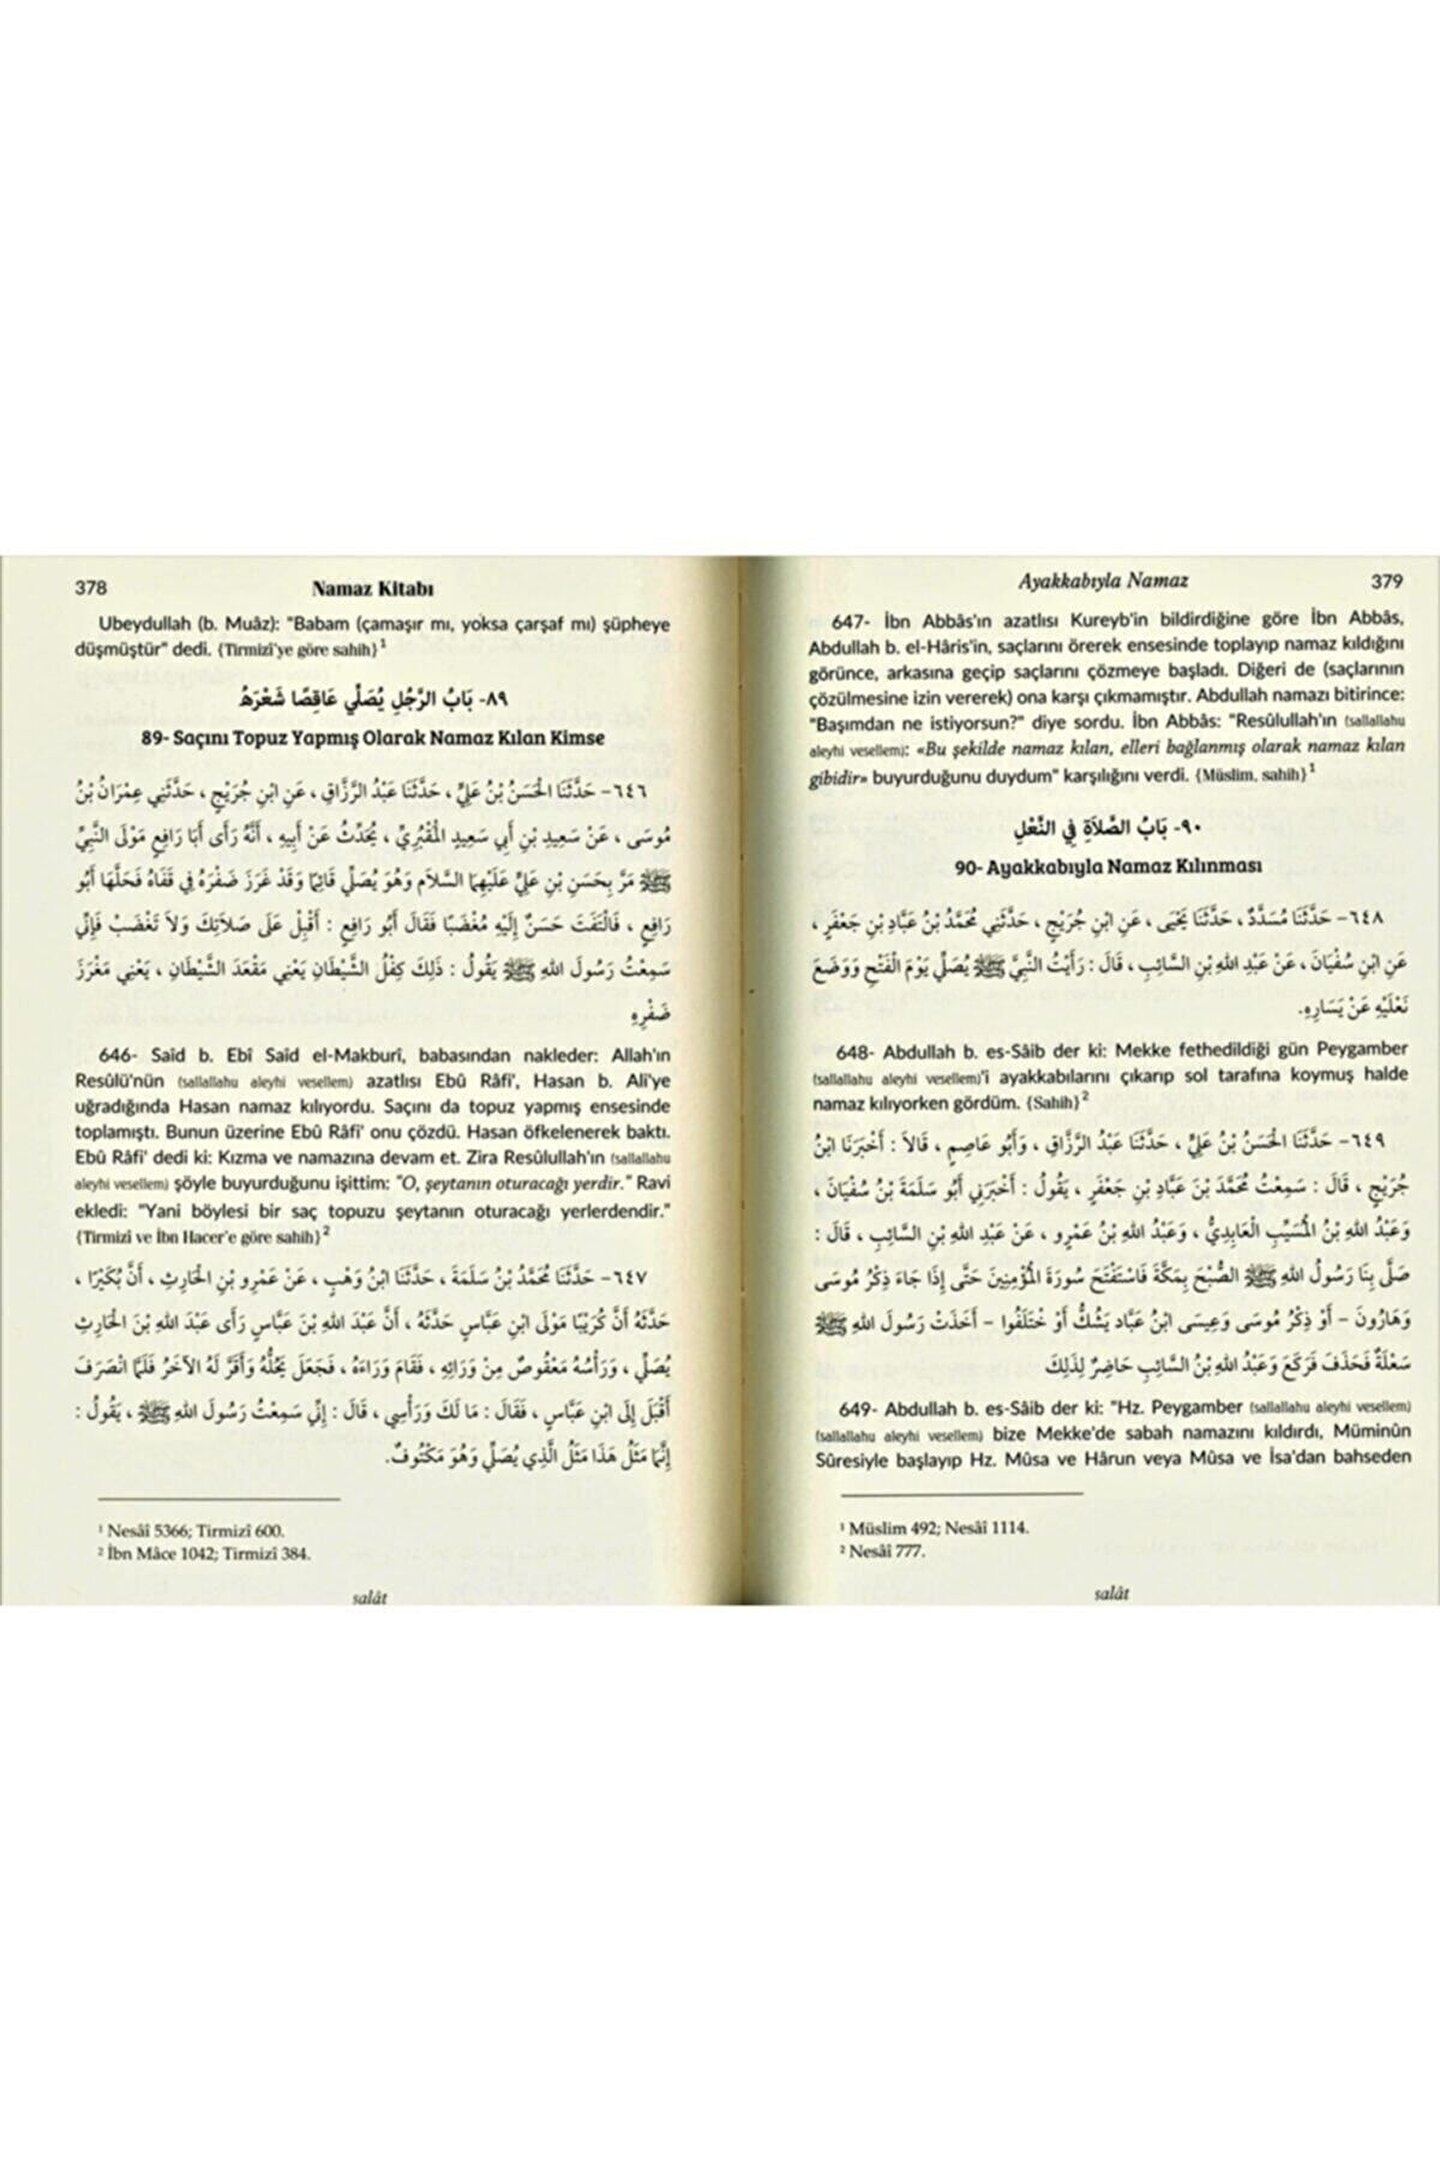 378 Namaz Kitabı
Ubeydullah (b. Muâz): "Babam (çamaşır mı, yoksa çarşaf mı) şüpheye
düşmüştür" dedi. {Tirmizî'ye göre sahih}¹
٨٩- بَابُ الرَّجُلِ يُصَلِّي عَاقِصًا شَعْرَهُ
89- Saçını Topuz Yapmış Olarak Namaz Kılan Kimse
٦٤٦- حَدَّثَنَا الْحَسَنُ بْنُ عَلِيٍّ ، حَدَّثَنَا عَبْدُ الرَّزَّاقِ ، عَنِ ابْنِ جُرَيْجٍ ، حَدَّثَنِي عِمْرَانُ بْنُ
مُوسَى ، عَنْ سَعِيدِ بْنِ أَبِي سَعِيدٍ الْمَقْبُرِيِّ ، يُحَدِّثُ عَنْ أَبِيهِ ، أَنَّهُ رَأَى أَبَا رَافِعٍ مَوْلَى النَّبِيِّ
ﷺ مَرَّ بِحَسَنِ بْنِ عَلِيٍّ عَلَيْهِمَا السَّلاَم وَهُوَ يُصَلِّي قَائِمًا وَقَدْ غَرَزَ ضَفْرَهُ فِي قَفَاهُ فَحَلَّهَا أَبُو
رَافِعٍ ، فَالْتَفَتَ حَسَنٌ إِلَيْهِ مُغْضَبًا فَقَالَ أَبُو رَافِعٍ : أَقْبِلْ عَلَى صَلاَتِكَ وَلاَ تَغْضَبْ فَإِنِّي
سَمِعْتُ رَسُولَ اللهِ ﷺ يَقُولُ : ذَلِكَ كِفْلُ الشَّيْطَانِ يَعْنِي مَقْعَدَ الشَّيْطَانِ ، يَعْنِي مَغْرَزَ
ضَفْرِهِ
646- Saîd b. Ebî Saîd el-Makburî, babasından nakleder: Allah'ın
Resûlü'nün (sallallahu aleyhi vesellem) azatlısı Ebû Râfi', Hasan b. Ali'ye
uğradığında Hasan namaz kılıyordu. Saçını da topuz yapmış ensesinde
toplamıştı. Bunun üzerine Ebû Râfi' onu çözdü. Hasan öfkelenerek baktı.
Ebû Râfi' dedi ki: Kızma ve namazına devam et. Zira Resûlullah'ın (sallallahu
aleyhi vesellem) şöyle buyurduğunu işittim: "O, şeytanın oturacağı yerdir." Ravi
ekledi: "Yani böylesi bir saç topuzu şeytanın oturacağı yerlerdendir."
{Tirmizî ve İbn Hacer'e göre sahih}²
٦٤٧- حَدَّثَنَا مُحَمَّدُ بْنُ سَلَمَةَ ، حَدَّثَنَا ابْنُ وَهْبٍ ، عَنْ عَمْرِو بْنِ الْحَارِثِ ، أَنَّ بُكَيْرًا ،
حَدَّثَهُ أَنَّ كُرَيْبًا مَوْلَى ابْنِ عَبَّاسٍ حَدَّثَهُ ، أَنَّ عَبْدَ اللهِ بْنَ عَبَّاسٍ رَأَى عَبْدَ اللهِ بْنَ الْحَارِثِ
يُصَلِّي ، وَرَأْسُهُ مَعْقُوصٌ مِنْ وَرَائِهِ ، فَقَامَ وَرَاءَهُ ، فَجَعَلَ يَحُلُّهُ وَأَقَرَّ لَهُ الآخَرُ فَلَمَّا انْصَرَفَ
أَقْبَلَ إِلَى ابْنِ عَبَّاسٍ ، فَقَالَ : مَا لَكَ وَرَأْسِي ، قَالَ : إِنِّي سَمِعْتُ رَسُولَ اللهِ ﷺ ، يَقُولُ :
إِنَّمَا مَثَلُ هَذَا مَثَلُ الَّذِي يُصَلِّي وَهُوَ مَكْتُوفٌ.
¹ Nesâî 5366; Tirmizî 600.
² İbn Mâce 1042; Tirmizî 384.
salât
Ayakkabıyla Namaz 379
647- İbn Abbâs'ın azatlısı Kureyb'in bildirdiğine göre İbn Abbâs,
Abdullah b. el-Hâris'in, saçlarını örerek ensesinde toplayıp namaz kıldığını
görünce, arkasına geçip saçlarını çözmeye başladı. Diğeri de (saçlarının
çözülmesine izin vererek) ona karşı çıkmamıştır. Abdullah namazı bitirince:
"Başımdan ne istiyorsun?" diye sordu. İbn Abbâs: "Resûlullah'ın (sallallahu
aleyhi vesellem): «Bu şekilde namaz kılan, elleri bağlanmış olarak namaz kılan
gibidir» buyurduğunu duydum" karşılığını verdi. {Müslim, sahih}¹
٩٠- بَابُ الصَّلاَةِ فِي النَّعْلِ
90- Ayakkabıyla Namaz Kılınması
٦٤٨- حَدَّثَنَا مُسَدَّدٌ ، حَدَّثَنَا يَحْيَى ، عَنِ ابْنِ جُرَيْجٍ ، حَدَّثَنِي مُحَمَّدُ بْنُ عَبَّادِ بْنِ جَعْفَرٍ ،
عَنِ ابْنِ سُفْيَانَ ، عَنْ عَبْدِ اللهِ بْنِ السَّائِبِ ، قَالَ : رَأَيْتُ النَّبِيَّ ﷺ يُصَلِّي يَوْمَ الْفَتْحِ وَوَضَعَ
نَعْلَيْهِ عَنْ يَسَارِهِ.
648- Abdullah b. es-Sâib der ki: Mekke fethedildiği gün Peygamber
(sallallahu aleyhi vesellem)'i ayakkabılarını çıkarıp sol tarafına koymuş halde
namaz kılıyorken gördüm. {Sahih}²
٦٤٩- حَدَّثَنَا الْحَسَنُ بْنُ عَلِيٍّ ، حَدَّثَنَا عَبْدُ الرَّزَّاقِ ، وَأَبُو عَاصِمٍ ، قَالاَ : أَخْبَرَنَا ابْنُ
جُرَيْجٍ ، قَالَ : سَمِعْتُ مُحَمَّدَ بْنَ عَبَّادِ بْنِ جَعْفَرٍ ، يَقُولُ : أَخْبَرَنِي أَبُو سَلَمَةَ بْنُ سُفْيَانَ ،
وَعَبْدُ اللهِ بْنُ الْمُسَيِّبِ الْعَابِدِيُّ ، وَعَبْدُ اللهِ بْنُ عَمْرٍو ، عَنْ عَبْدِ اللهِ بْنِ السَّائِبِ ، قَالَ :
صَلَّى بِنَا رَسُولُ اللهِ ﷺ الصُّبْحَ بِمَكَّةَ فَاسْتَفْتَحَ سُورَةَ الْمُؤْمِنِينَ حَتَّى إِذَا جَاءَ ذِكْرُ مُوسَى
وَهَارُونَ – أَوْ ذِكْرُ مُوسَى وَعِيسَى ابْنُ عَبَّادٍ يَشُكُّ أَوْ خْتَلَفُوا – أَخَذَتْ رَسُولَ اللهِ ﷺ
سَعْلَةٌ فَحَذَفَ فَرَكَعَ وَعَبْدُ اللهِ بْنُ السَّائِبِ حَاضِرٌ لِذَلِكَ
649- Abdullah b. es-Sâib der ki: "Hz. Peygamber (sallallahu aleyhi vesellem)
(sallallahu aleyhi vesellem) bize Mekke'de sabah namazını kıldırdı, Müminûn
Sûresiyle başlayıp Hz. Mûsa ve Hârun veya Mûsa ve İsa'dan bahseden
¹ Müslim 492; Nesâî 1114.
² Nesâî 777.
salât